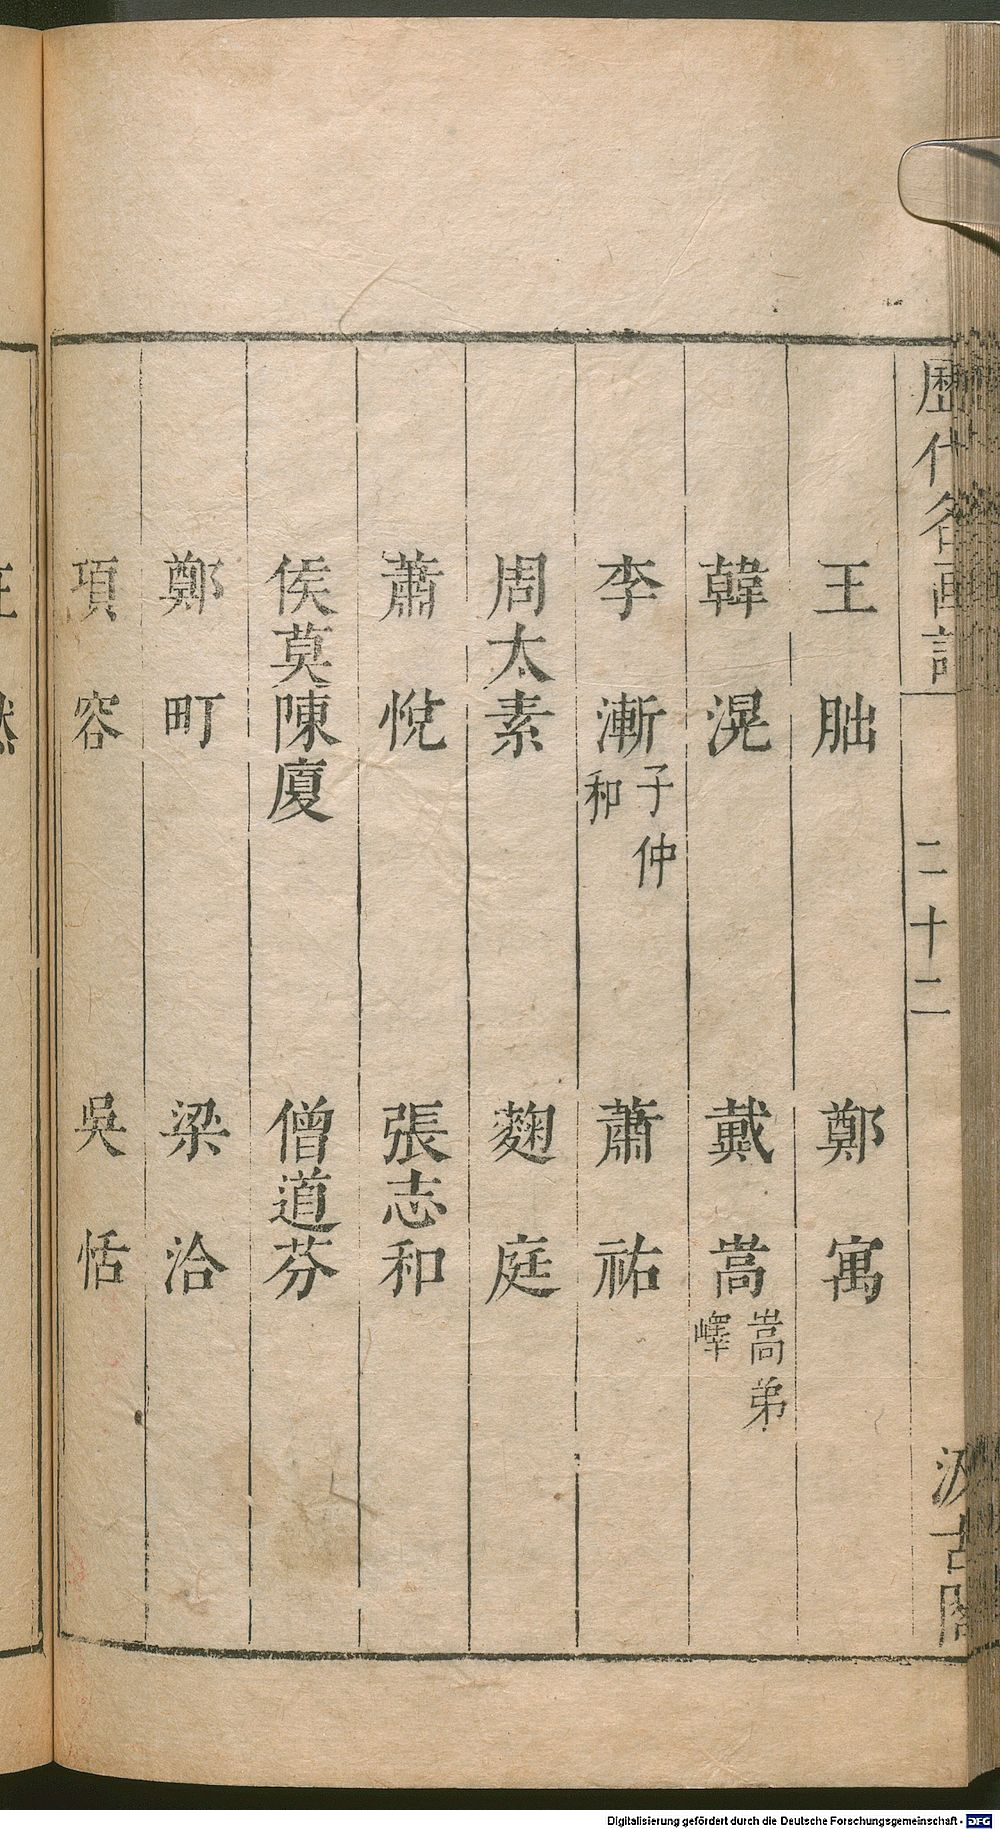 歷代名画記 二十二 汲古閣
王 朏 鄭 寓
韓 滉 戴 嵩 嵩弟嶧
李 漸 子仲和 蕭 祐
周太素 麴 庭
蕭 悅 張志和
侯莫陳廈 僧道芬
鄭 町 梁 洽
項 容 吳 恬
Digitalisierung gefördert durch die Deutsche Forschungsgemeinschaft - DFG